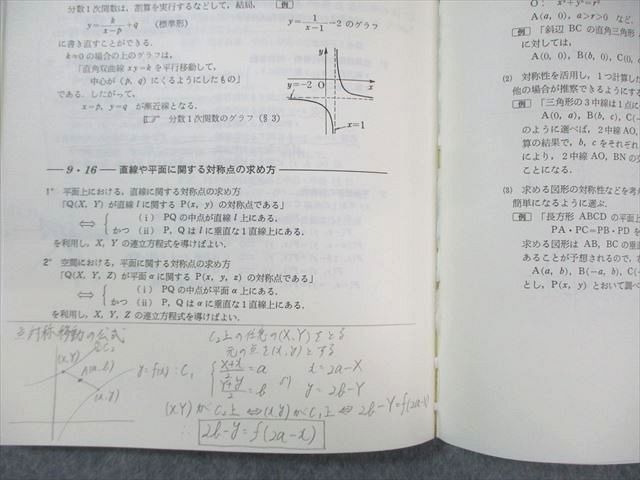 分数1次関数は，割算を実行するなどして，結局，
y=k/(x-p)+q （標準形）
に書き直すことができる．
k≠0の場合の上のグラフは，
「直角双曲線 xy=k を平行移動して，
中心が(p, q)にくるようにしたもの」
である．したがって，
x=p, y=q が漸近線となる．
分数1次関数のグラフ（§3）
例
y=1/(x-1)-2 のグラフ
y
y=-2
O
x
x=1
9・16 直線や平面に関する対称点の求め方
1° 平面上における，直線に関する対称点の求め方
「Q(X, Y) が直線 l に関する P(x, y) の対称点である」
⇔ { (i) PQ の中点が直線 l 上にある．
かつ (ii) P, Q は l に垂直な1直線上にある．
を利用し，X, Y の連立方程式を導けばよい．
2° 空間における，平面に関する対称点の求め方
「Q(X, Y, Z) が平面 α に関する P(x, y, z) の対称点である」
⇔ { (i) PQ の中点が平面 α 上にある．
かつ (ii) P, Q は α に垂直な1直線上にある．
を利用し，X, Y, Z の連立方程式を導けばよい．
点対称移動の公式
C₂
(X,Y)
A(a,b)
(x,y)
y=f(x):C₁
C₂上の任意の(X,Y)をとる
元の点を(x,y)とする
{ (X+x)/2=a
(Y+y)/2=b より
x=2a-X
y=2b-Y
(X,Y)がC₂上⇔(x,y)がC₁上⇔2b-Y=f(2a-X)
∴ 2b-y=f(2a-x)
O: x²+y²=r²
A(a, 0), a>r>0 など
例 「斜辺 BC の直角三角形
に対しては，
A(0, 0), B(b, 0), C(0,
(2) 対称性を活用し，1つ計算し
他の場合が推察できるようにする
例 「三角形の3中線は1点に
A(0, a), B(b, c), C(-
のように選べば，2中線 AO,
算の結果で，b, c をそれぞれ
により，2中線 AO, BN の交
(3) 求める図形の対称性などを考
簡単になるように選ぶ．
例 「長方形 ABCD の平面上
PA・PC=PB・PD を
求める図形は AB, BC の垂直
あることが予想されるので，
A(a, b), B(-a, b), C(
とし，P(x, y) とおいて調べ